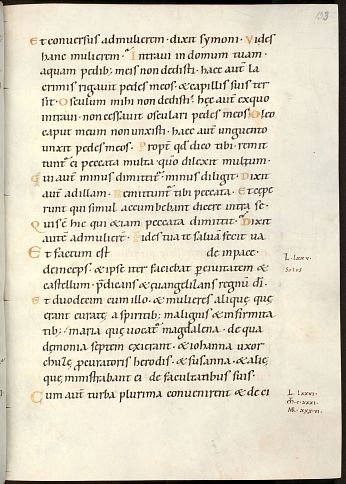 133
Et conversus admulierem · dixit symoni · Vides
hanc mulierem · Intravi in domum tuam ·
aquam pedib; meis non dedisti · haec aut̄ la
crimis rigavit pedes meos · & capillis suis ter
sit · Osculum mihi non dedisti · hęc aut̄ exquo
intravi · non cessavit osculari pedes meos · Oleo
caput meum non unxisti · haec aut̄ unguento
unxit pedes meos · Propt̄ qd̄ dico tibi · remit
tunt̄ ei peccata multa quō dilexit multum ·
Cui aut̄ minus dimittit̄ · minus diligit · Dixit
aut̄ adillam · Remittunt̄ tibi peccata · Et cępe
runt qui simul accumbebant dicere intra se ·
Quis ē hic qui &iam peccata dimittit · Dixit
aut̄ admulierē · Fides tua te salvā fecit va
Et factum est de inpace ·
deinceps · & ipse iter faciebat p civitatem &
castellum · p̄dicans & euangelizans regnū dī ·
Et duodecim cum illo · & mulieres aliquę quę
erant curatę aspiritib; malignis & infirmita
tib; · maria quę vocat̄ magdalenę · de qua
demonia septem exierant · & iohanna uxor
chuzę procuratoris herodis · & susanna · & alię
quę ministrabant ei de facultatibus suis ·
Cum aut̄ turba plurima convenirent & de ci
L · lxxv ·
Solus
L · lxxvi ·